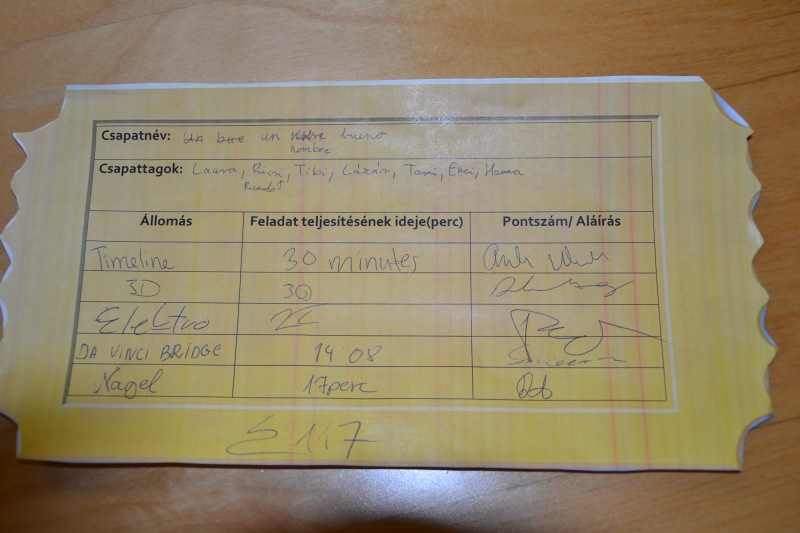 Csapatnév: un bueno
nombre
Csapattagok: Laura, Ricsi, Tibi, Lázár, Tomi, Encsi, Hanna
Állomás Feladat teljesítésének ideje(perc) Pontszám/ Aláírás
Timeline 30 minutes
3D 30
Elektro
DA VINCI BRIDGE 14 08
Nagel 17perc
Σ 117